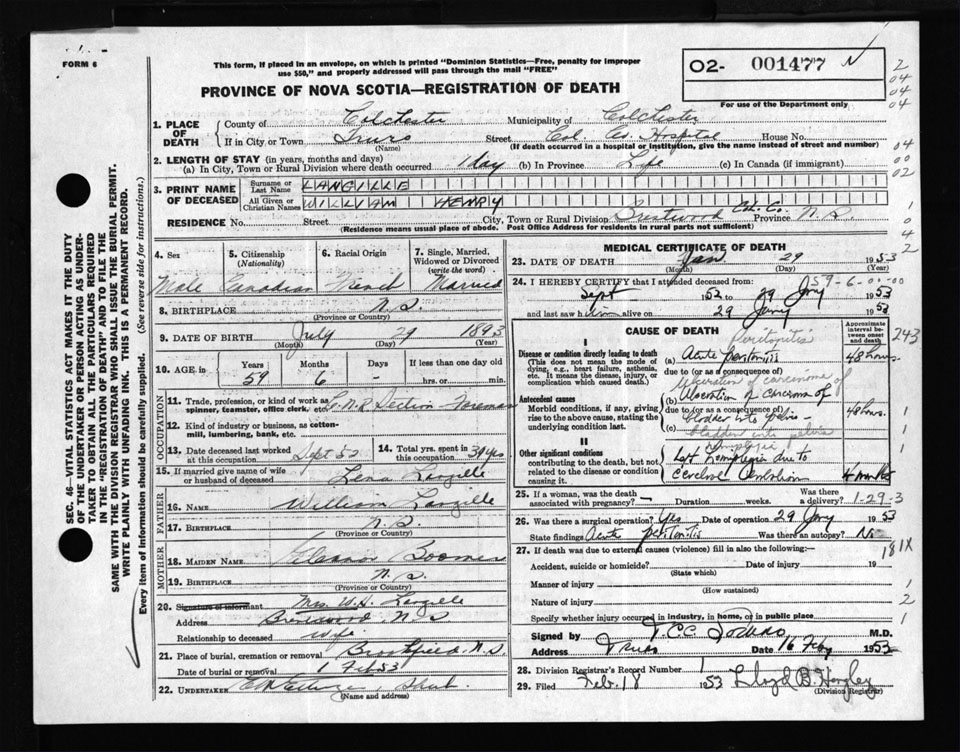 FORM 6
This form, if placed in an envelope, on which is printed "Dominion Statistics—Free, penalty for improper
use $50," and properly addressed will pass through the mail "FREE"
PROVINCE OF NOVA SCOTIA—REGISTRATION OF DEATH
O2- 001477 N
For use of the Department only
2
04
04
04
00
02
1. PLACE OF DEATH
County of Colchester Municipality of Colchester
If in City or Town Truro Street Col. Co. Hospital House No.
(Name) (If death occurred in a hospital or institution, give the name instead of street and number)
2. LENGTH OF STAY (in years, months and days)
(a) In City, Town or Rural Division where death occurred 1 day (b) In Province Life (c) In Canada (if immigrant)
3. PRINT NAME OF DECEASED
Surname or Last Name LANGILLE
All Given or Christian Names WILLIAM HENRY
RESIDENCE No. Street City, Town or Rural Division Brentwood Col. Co. Province N.S.
(Residence means usual place of abode. Post Office Address for residents in rural parts not sufficient)
1
0
4
2
4. Sex Male
5. Citizenship (Nationality) Canadian
6. Racial Origin French
7. Single, Married, Widowed or Divorced (write the word) Married
8. BIRTHPLACE N.S.
(Province or Country)
9. DATE OF BIRTH July 29 1893
(Month) (Day) (Year)
10. AGE in Years 59 Months 6 Days - If less than one day old
hrs. or min.
OCCUPATION
11. Trade, profession, or kind of work as spinner, teamster, office clerk, etc. C.N.R. Section Foreman
12. Kind of industry or business, as cotton-mill, lumbering, bank, etc.
13. Date deceased last worked at this occupation Sept 52
14. Total yrs. spent in this occupation 34 yrs
15. If married give name of wife or husband of deceased Lena Langille
FATHER
16. NAME William Langille
17. BIRTHPLACE N.S.
(Province or Country)
MOTHER
18. MAIDEN NAME Eleanor Boomer
19. BIRTHPLACE N.S.
(Province or Country)
20. Signature of informant Mrs. W.H. Langille
Address Brentwood N.S
Relationship to deceased wife
21. Place of burial, cremation or removal Brookfield N.S.
Date of burial or removal 1 Feb 53
22. UNDERTAKER
(Name and address)
MEDICAL CERTIFICATE OF DEATH
23. DATE OF DEATH Jan 29 1953
(Month) (Day) (Year)
24. I HEREBY CERTIFY that I attended deceased from: 59-6-00-00
Sept 1952 to 29 Jany 1953
and last saw him alive on 29 Jany 1953
CAUSE OF DEATH
Approximate interval between onset and death
243
I
Disease or condition directly leading to death
(This does not mean the mode of dying, e.g., heart failure, asthenia, etc. It means the disease, injury, or complication which caused death.
Peritonitis
(a) Acute peritonitis 48 hours
due to (or as a consequence of)
Antecedent causes
Morbid conditions, if any, giving rise to the above cause, stating the underlying condition last.
Ulceration of carcinoma of
(b) Ulceration of carcinoma of
due to (or as a consequence of)
bladder into pelvis 48 hours.
(c) bladder into pelvis
1
1
II
Other significant conditions
contributing to the death, but not related to the disease or condition causing it.
Hemiplegia
Left hemiplegia due to
Cerebral embolism 4 months
1
25. If a woman, was the death associated with pregnancy? - Duration weeks. Was there a delivery?
1-29-3
26. Was there a surgical operation? Yes Date of operation 29 Jany 1953
State findings Acute peritonitis Was there an autopsy? No
181X
27. If death was due to external causes (violence) fill in also the following:-
Accident, suicide or homicide? Date of injury 19
(State which)
Manner of injury
(How sustained)
1
Nature of injury
2
Specify whether injury occurred in industry, in home, or in public place
1
Signed by M.D.
Address Truro Date 16 Feby 1953
28. Division Registrar's Record Number 1
29. Filed Feb. 18 1953 Lloyd B.
(Division Registrar)
SEC. 46—VITAL STATISTICS ACT MAKES IT THE DUTY
OF THE UNDERTAKER OR PERSON ACTING AS UNDER-
TAKER TO OBTAIN ALL THE PARTICULARS REQUIRED
IN THE "REGISTRATION OF DEATH" AND TO FILE THE
SAME WITH THE DIVISION REGISTRAR WHO SHALL ISSUE THE BURIAL PERMIT.
WRITE PLAINLY WITH UNFADING INK. THIS IS A PERMANENT RECORD.
Every item of information should be carefully supplied. (See reverse side for instructions.)